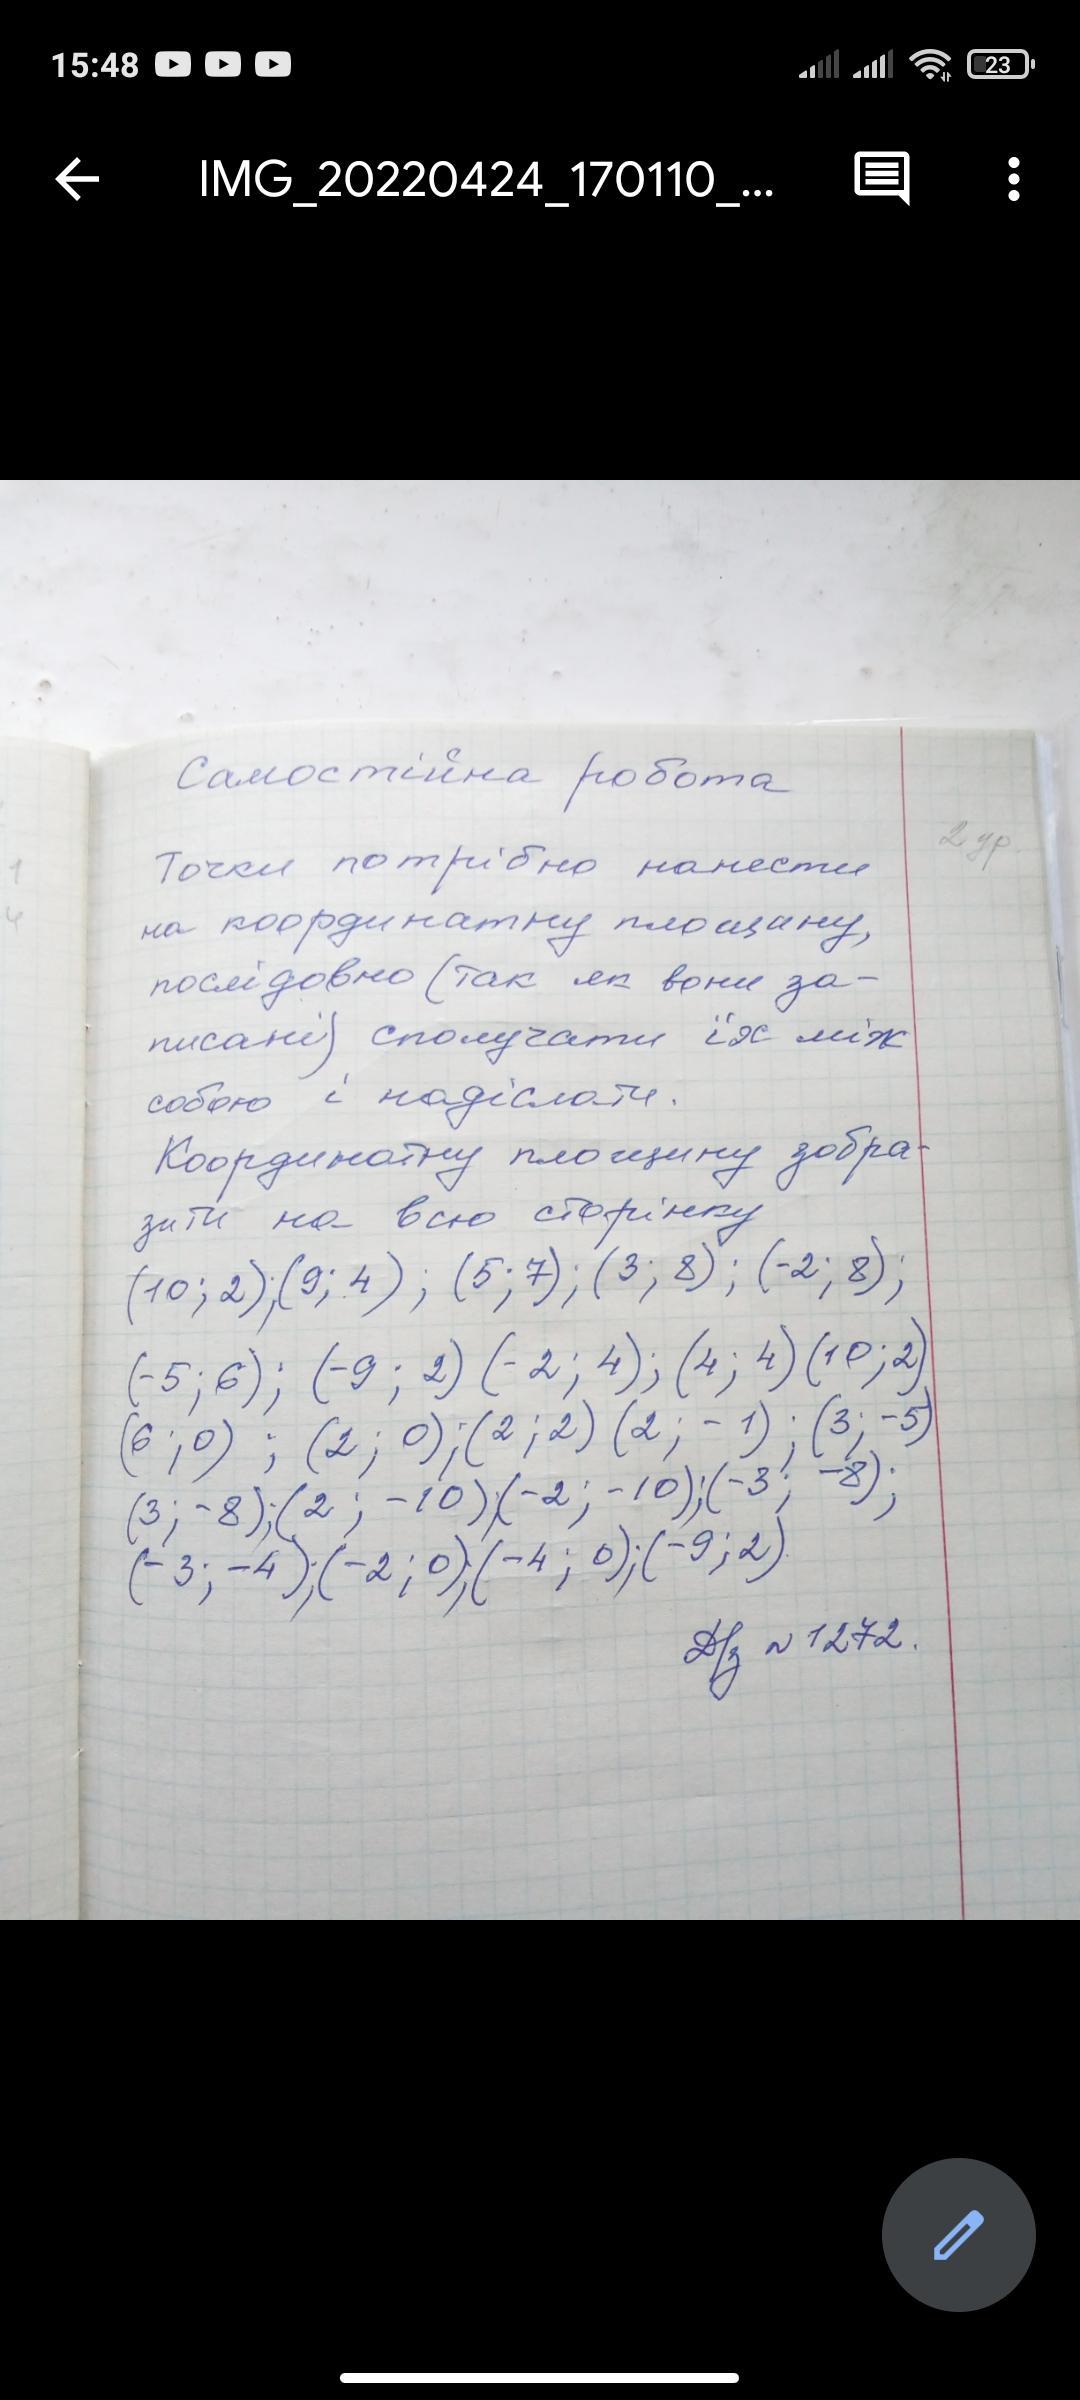 15:48
23
IMG_20220424_170110_...
Самостійна робота
2 ур.
Точки потрібно нанести
на координатну площину,
послідовно (так як вони за-
писані) сполучати їх між
собою і надіслати.
Координатну площину зобра-
зити на всю сторінку
(10; 2);(9; 4) ; (5; 7); (3; 8) ; (-2; 8);
(-5; 6); (-9 ; 2) (-2; 4); (4; 4) (10; 2)
(6; 0) ; (2; 0);(2; 2) (2; -1) ; (3; -5)
(3; -8);(2 ; -10);(-2; -10);(-3; -8);
(-3; -4);(-2; 0);(-4; 0);(-9; 2)
Д/з № 1272.
1
4